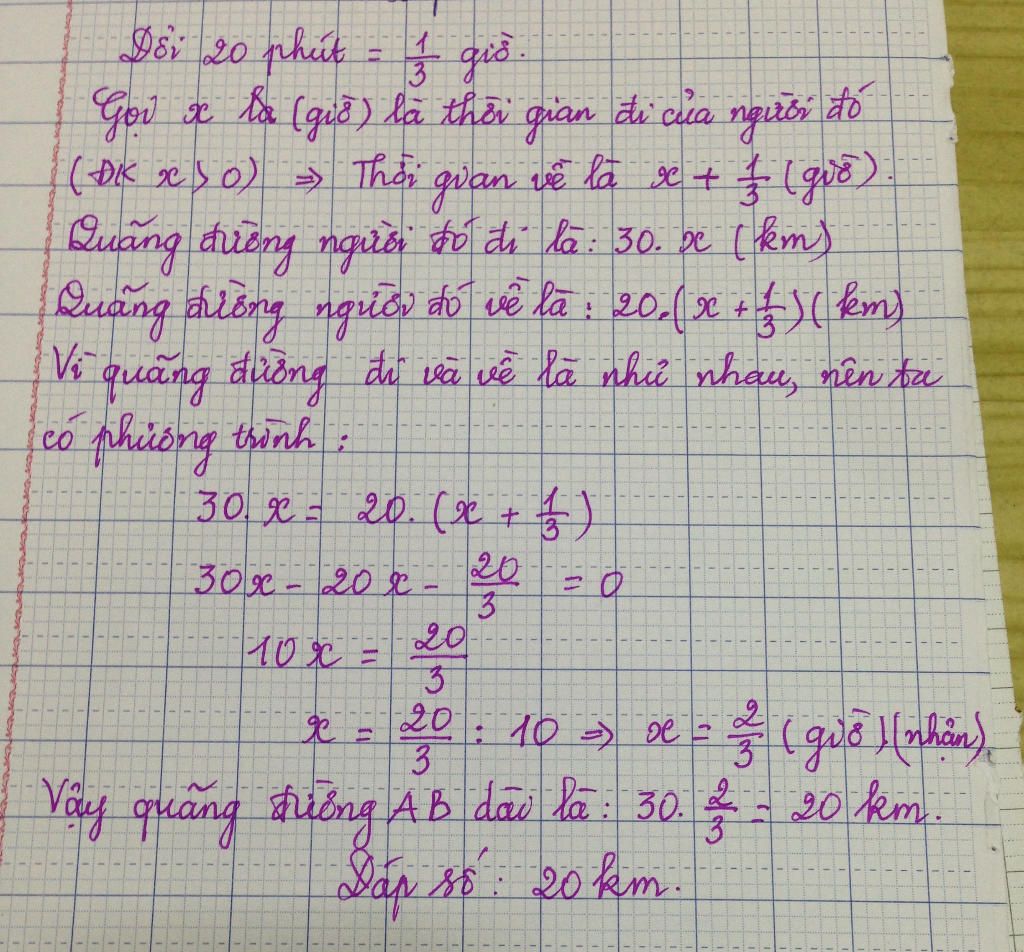 Đổi 20 phút = 1/3 giờ.
Gọi x là (giờ) là thời gian đi của người đó
(ĐK x > 0) ⇒ Thời gian về là x + 1/3 (giờ).
Quãng đường người đó đi là: 30. x (km)
Quãng đường người đó về là: 20.(x + 1/3)(km)
Vì quãng đường đi và về là như nhau, nên ta
có phương trình:
30. x = 20. (x + 1/3)
30x - 20x - 20/3 = 0
10x = 20/3
x = 20/3 : 10 ⇒ x = 2/3 (giờ)(nhận)
Vậy quãng đường AB dài là: 30. 2/3 = 20 km.
Đáp số: 20 km.